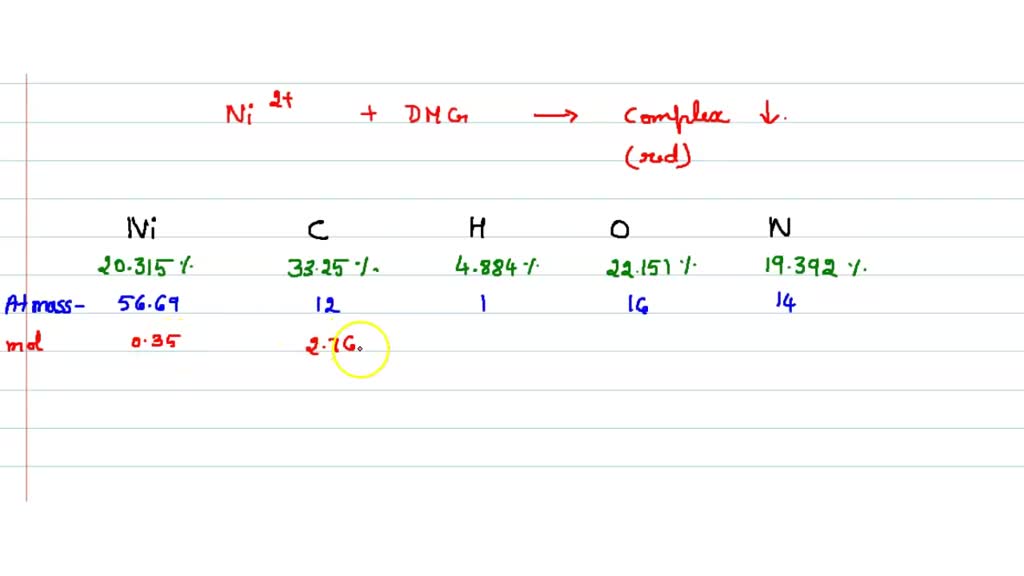 Ni 2+ + DMG → Complex ↓.
(red)
Ni C H O N
20.315 % 33.25 % . 4.884 % . 22.151 % . 19.392 % .
At mass - 56.69 12 1 16 14
mol 0.35 2.76